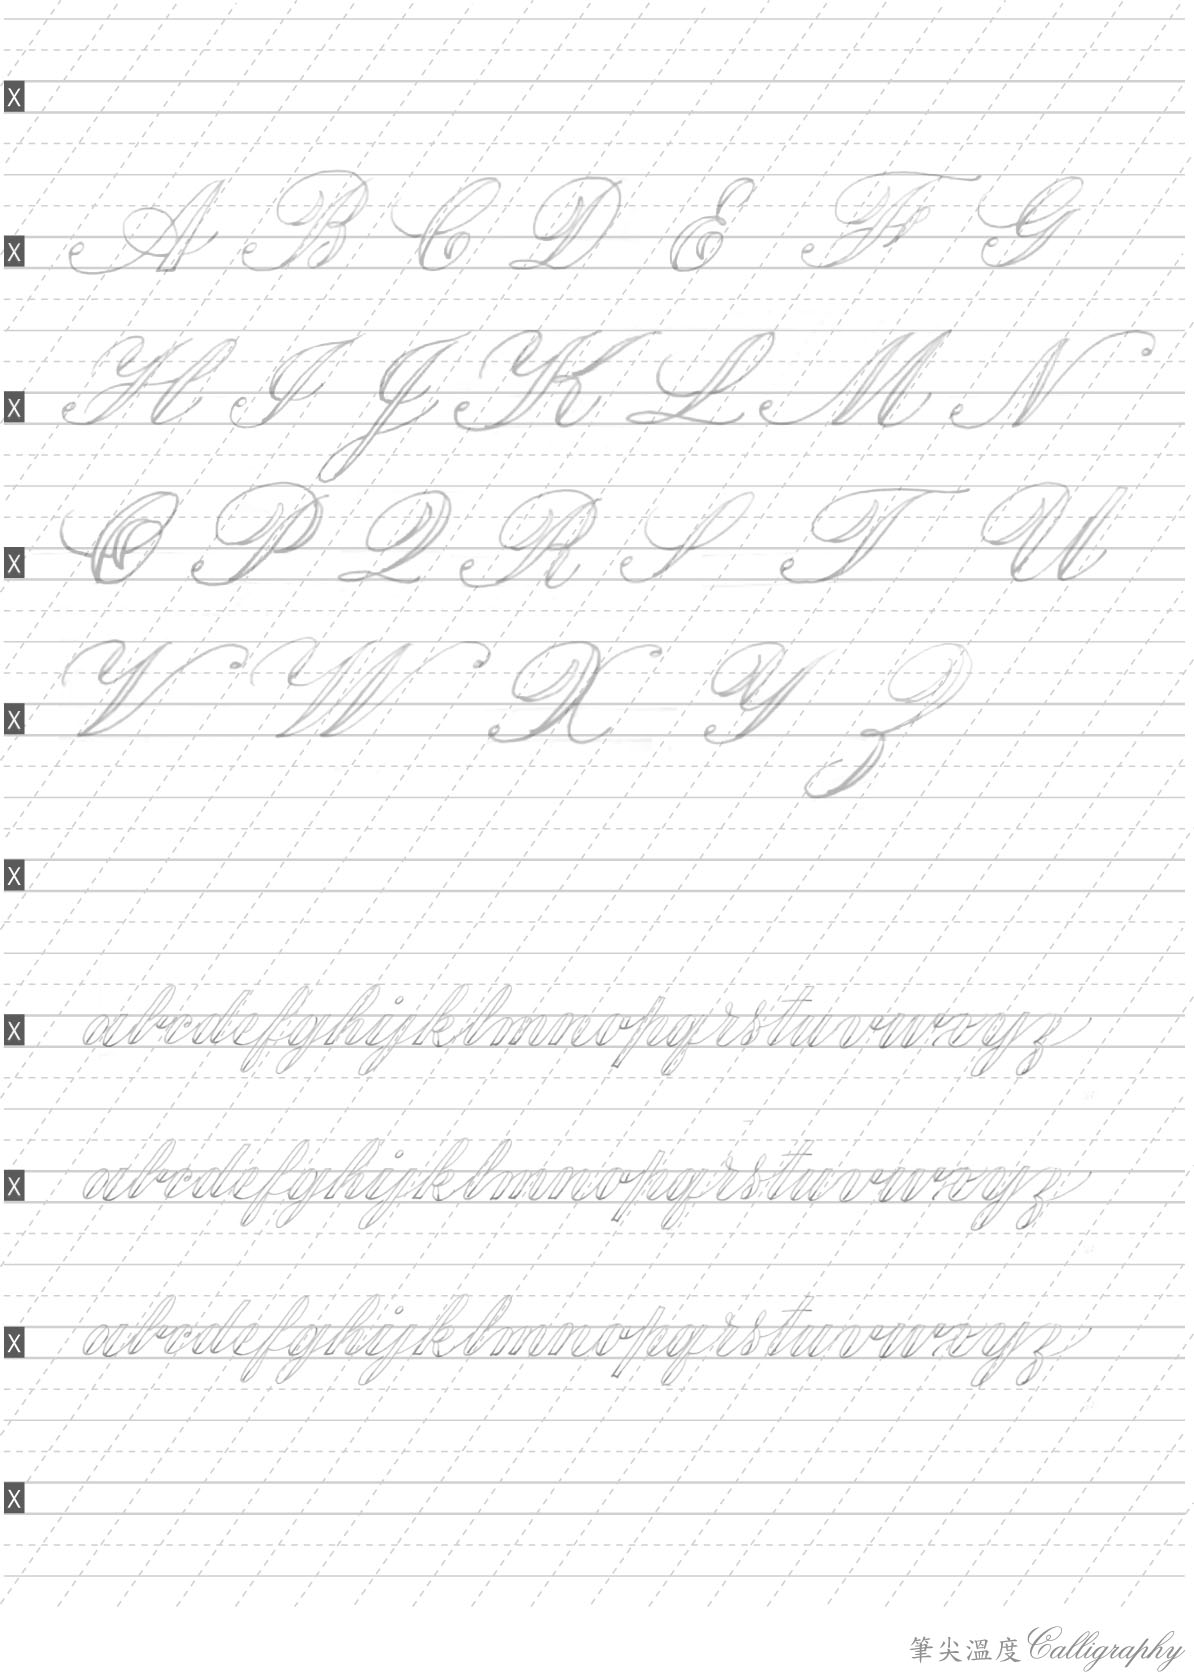 X
X A B C D E F G
X H I J K L M N
X O P Q R S T U
X V W X Y Z
X
X abcdefghijklmnopqrstuvwxyz
X abcdefghijklmnopqrstuvwxyz
X abcdefghijklmnopqrstuvwxyz
X
筆尖溫度 Calligraphy